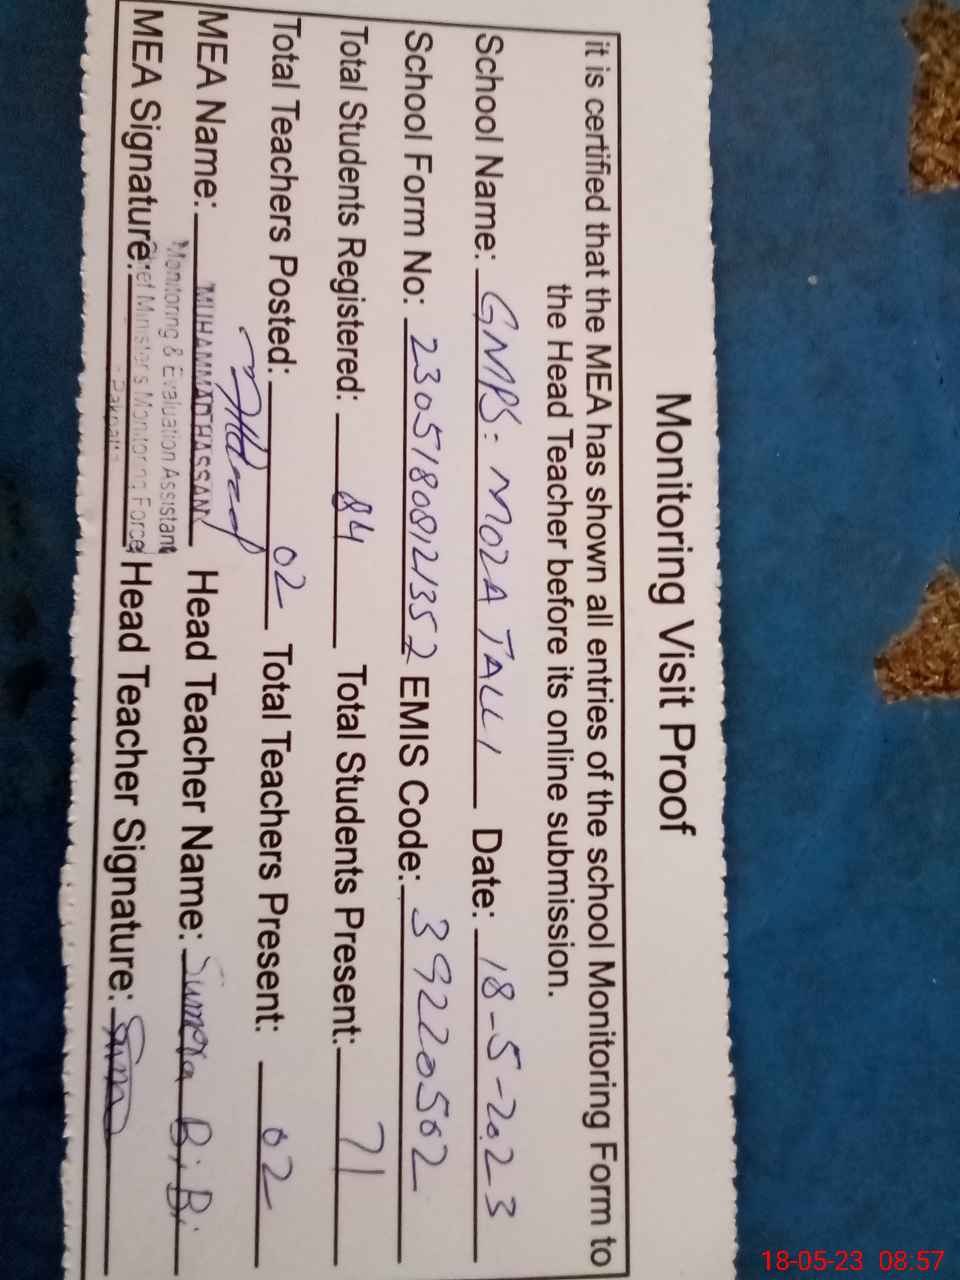 Monitoring Visit Proof
it is certified that the MEA has shown all entries of the school Monitoring Form to
the Head Teacher before its online submission.
School Name: GMPS: MOZA TALLI Date: 18-5-2023
School Form No: 23051808121352 EMIS Code: 39220502
Total Students Registered: 84 Total Students Present: 71
Total Teachers Posted: 02 Total Teachers Present: 02
MEA Name: MUHAMMAD HASSAN Head Teacher Name: Sumera BiBi
Monitoring & Evaluation Assistant
MEA Signature: Chief Minister's Monitoring Force Head Teacher Signature:
Pakpattan
18-05-23 08:57